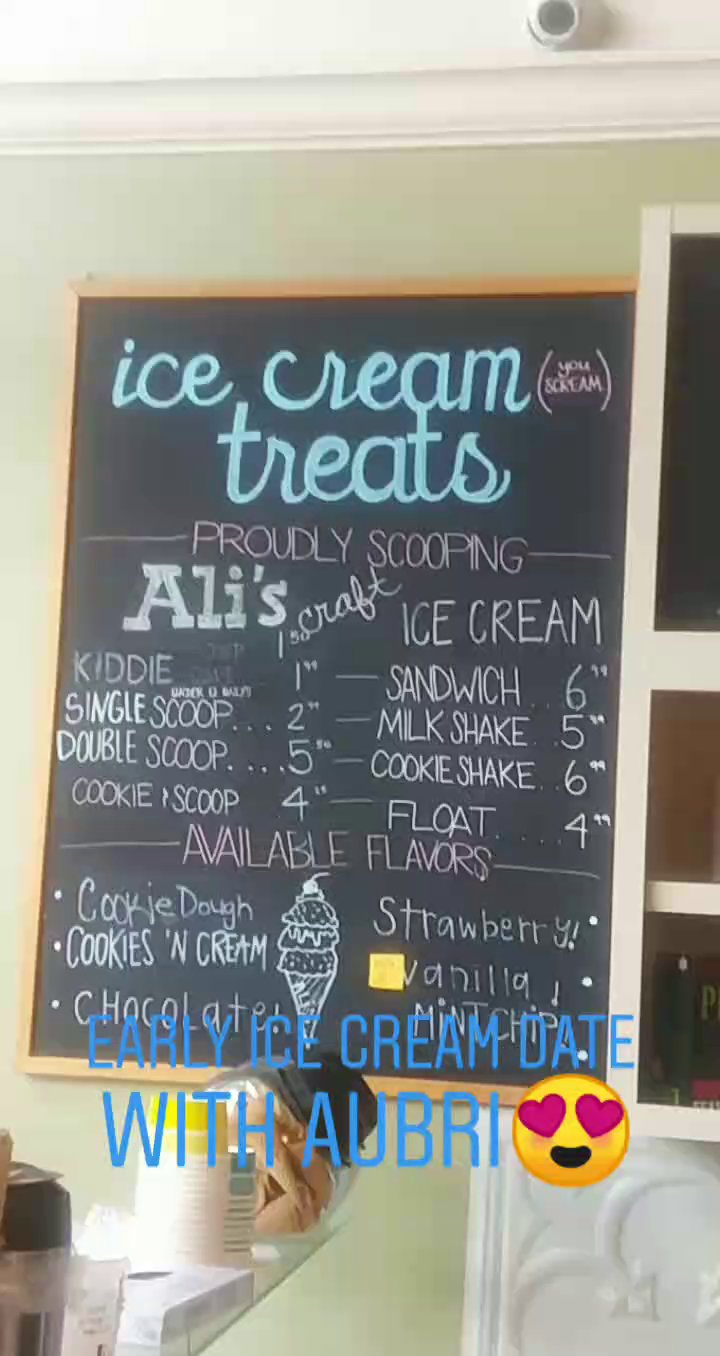 ice cream (you SCREAM)
treats
PROUDLY SCOOPING
Ali's craft ICE CREAM
KIDDIE 1⁹⁹
UNDER 12 ONLY!
SINGLE SCOOP.... 2⁹⁹
DOUBLE SCOOP.....5⁵⁰
COOKIE & SCOOP 4
SANDWICH..6⁹⁹
MILK SHAKE..5⁹⁹
COOKIE SHAKE..6⁹⁹
FLOAT......4⁹⁹
AVAILABLE FLAVORS
• Cookie Dough
• COOKIES 'N CREAM
• CHOCOLate!
Strawberry! •
vanilla! •
MiNT CHiP! •
EARLY ICE CREAM DATE
WITH AUBRI😍